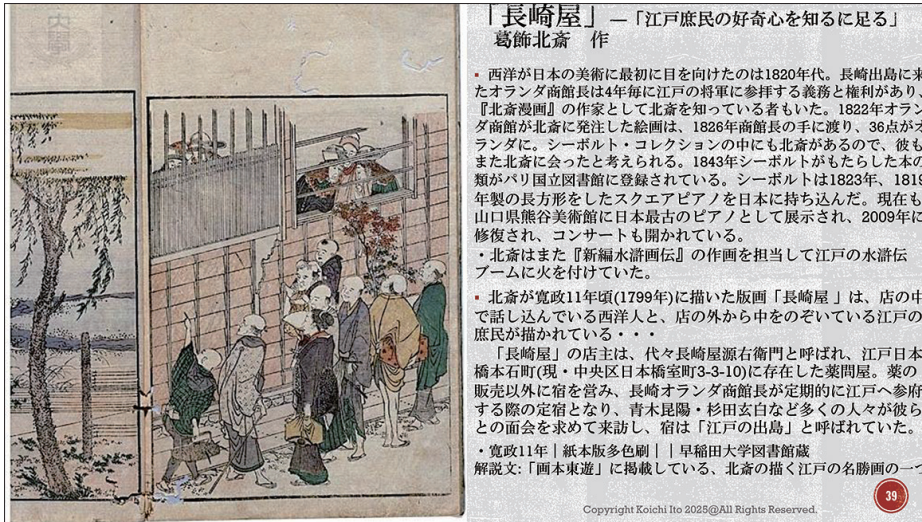 「長崎屋」―「江戸庶民の好奇心を知るに足る」
葛飾北斎 作
▪ 西洋が日本の美術に最初に目を向けたのは1820年代。長崎出島に来
たオランダ商館長は4年毎に江戸の将軍に参拝する義務と権利があり、
『北斎漫画』の作家として北斎を知っている者もいた。1822年オラン
ダ商館が北斎に発注した絵画は、1826年商館長の手に渡り、36点がオ
ランダに。シーボルト・コレクションの中にも北斎があるので、彼も
また北斎に会ったと考えられる。1843年シーボルトがもたらした本の
類がパリ国立図書館に登録されている。シーボルトは1823年、1819
年製の長方形をしたスクエアピアノを日本に持ち込んだ。現在も
山口県熊谷美術館に日本最古のピアノとして展示され、2009年に
修復され、コンサートも開かれている。
・北斎はまた『新編水滸画伝』の作画を担当して江戸の水滸伝
ブームに火を付けていた。
▪ 北斎が寛政11年頃(1799年)に描いた版画「長崎屋 」は、店の中
で話し込んでいる西洋人と、店の外から中をのぞいている江戸の
庶民が描かれている・・・
「長崎屋」の店主は、代々長崎屋源右衛門と呼ばれ、江戸日本
橋本石町(現・中央区日本橋室町3-3-10)に存在した薬問屋。薬の
販売以外に宿を営み、長崎オランダ商館長が定期的に江戸へ参府
する際の定宿となり、青木昆陽・杉田玄白など多くの人々が彼ら
との面会を求めて来訪し、宿は「江戸の出島」と呼ばれていた。
・寛政11年｜紙本版多色刷｜｜早稲田大学図書館蔵
解説文:「画本東遊」に掲載している、北斎の描く江戸の名勝画の一つ
39
Copyright Koichi Ito 2025@All Rights Reserved.